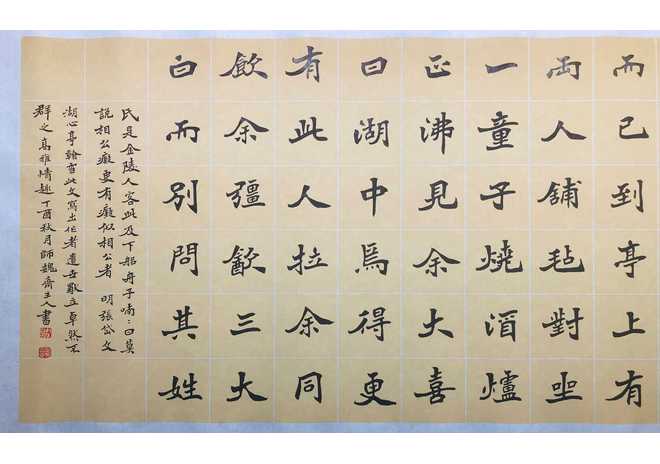 而已到亭上有
兩人舖毡對坐
一童子燒酒爐
正沸見余大喜
曰湖中焉得更
有此人拉余同
飲余彊飲三大
白而別問其姓
氏是金陵人客此及下船舟子喃:曰莫
說相公癡更有癡似相公者 明張岱文
湖心亭看雪此文寫出作者遺世獨立卓然不
群之高雅情趣丁酉秋月師魏齊主人書